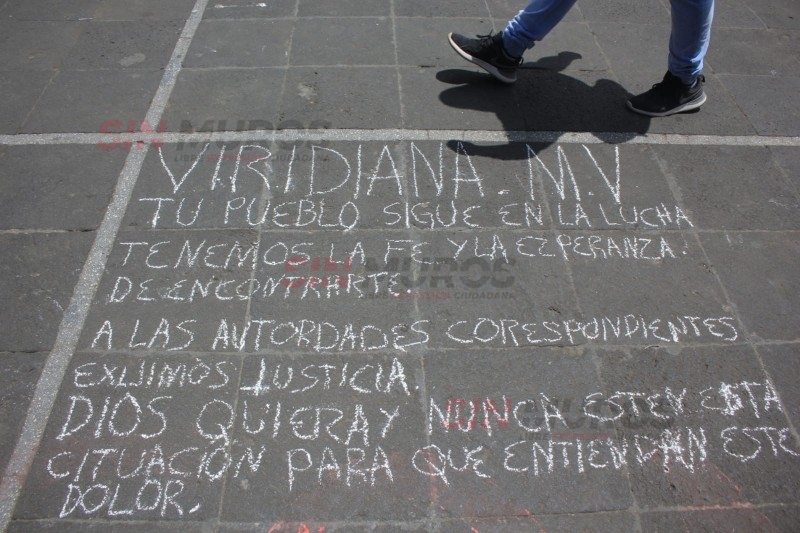 VIRIDIANA. M.V
TU PUEBLO SIGUE EN LA LUCHA
TENEMOS LA FE Y LA EZPERANZA.
DE ENCONTRARTE.
A LAS AUTORDADES CORESPONDIENTES
EXIJIMOS JUSTICIA.
DIOS QUIERAY NUNCA ESTEN ESTA
CITUACIÓN PARA QUE ENTIENDAN ESTE
DOLOR.
SIN MUROS
LIBRE EXPRESIÓN CIUDADANA
SIN MUROS
LIBRE EXPRESIÓN CIUDADANA
SIN MUROS